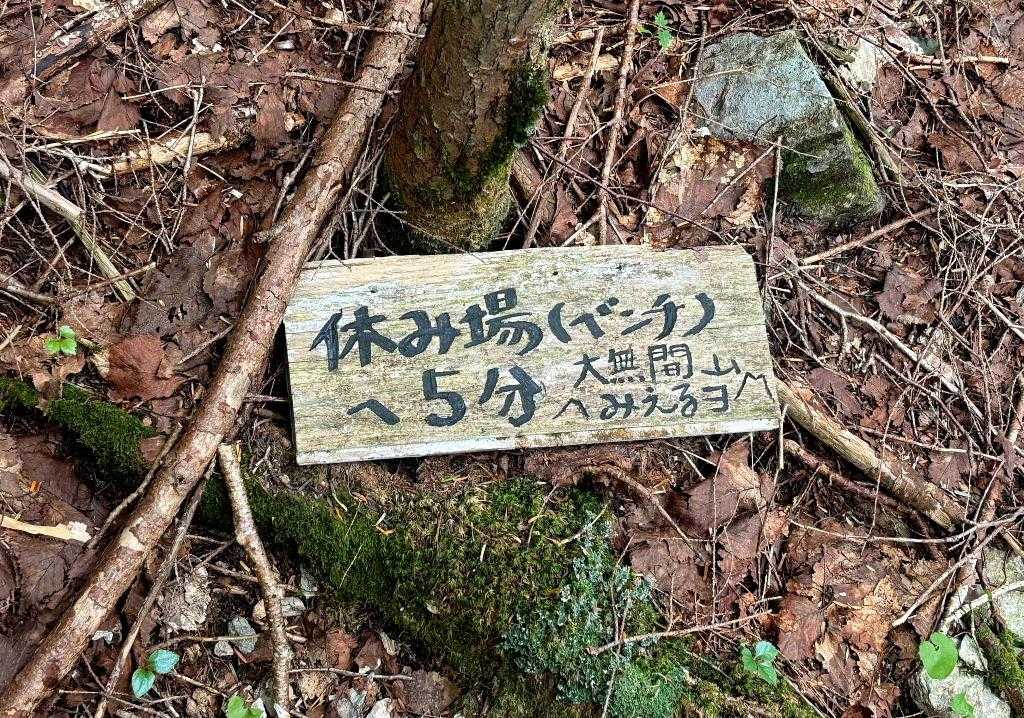 休み場(ベンチ)
へ5分
大無間山
へみえるヨ